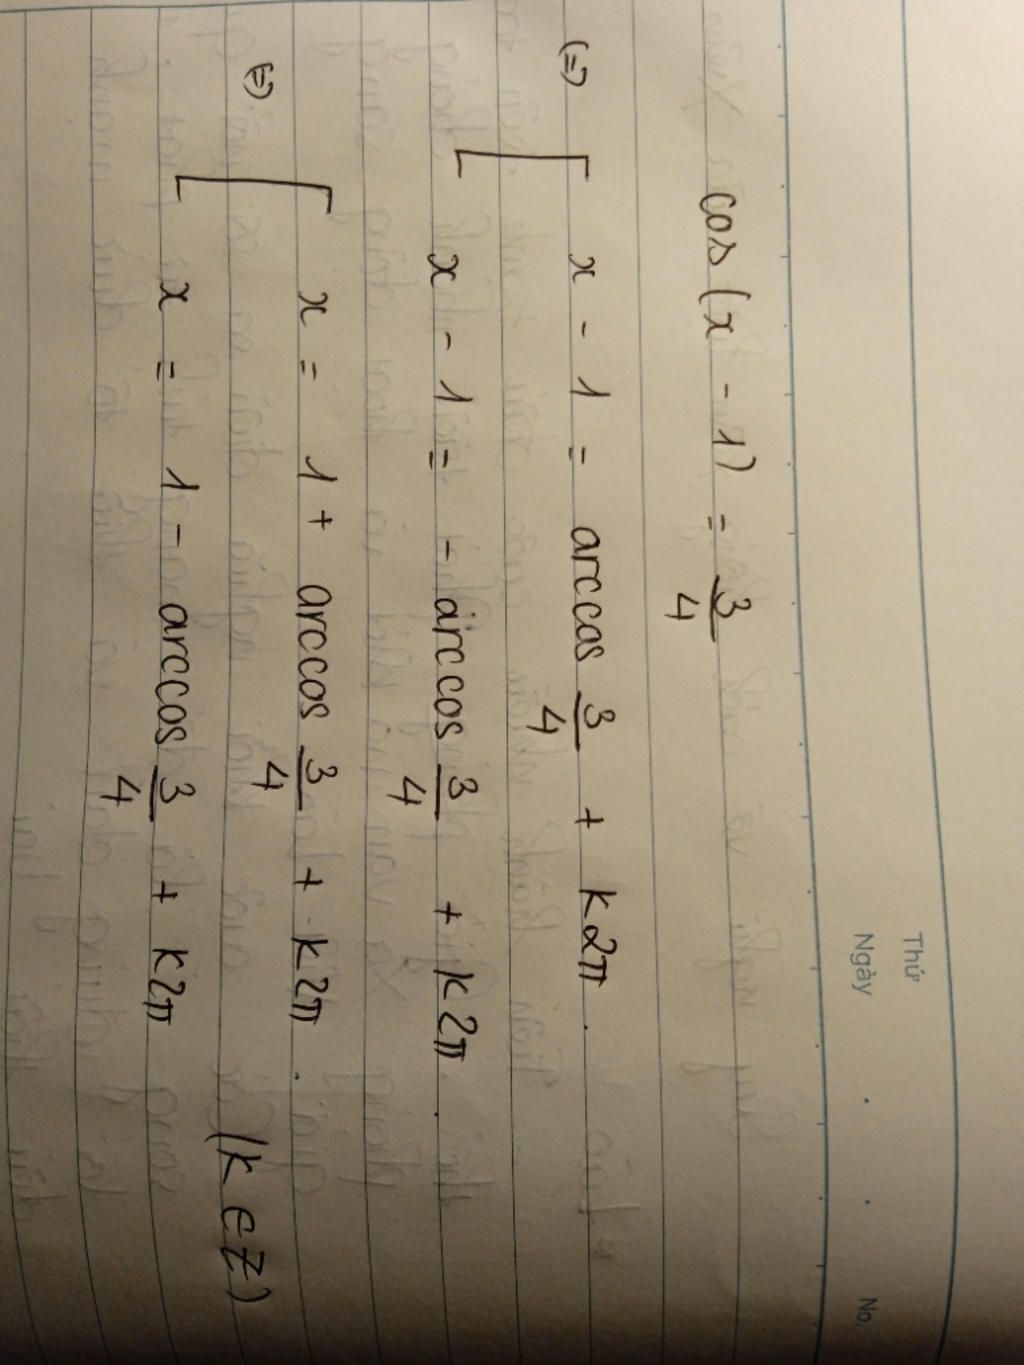 Thứ
Ngày . . No.
cos (x - 1) = 3/4
(=) [ x - 1 = arccos 3/4 + k2π .
x - 1 = - arccos 3/4 + k2π .
(=) [ x = 1 + arccos 3/4 + k2π .
x = 1 - arccos 3/4 + k2π
(k ∈ Z)